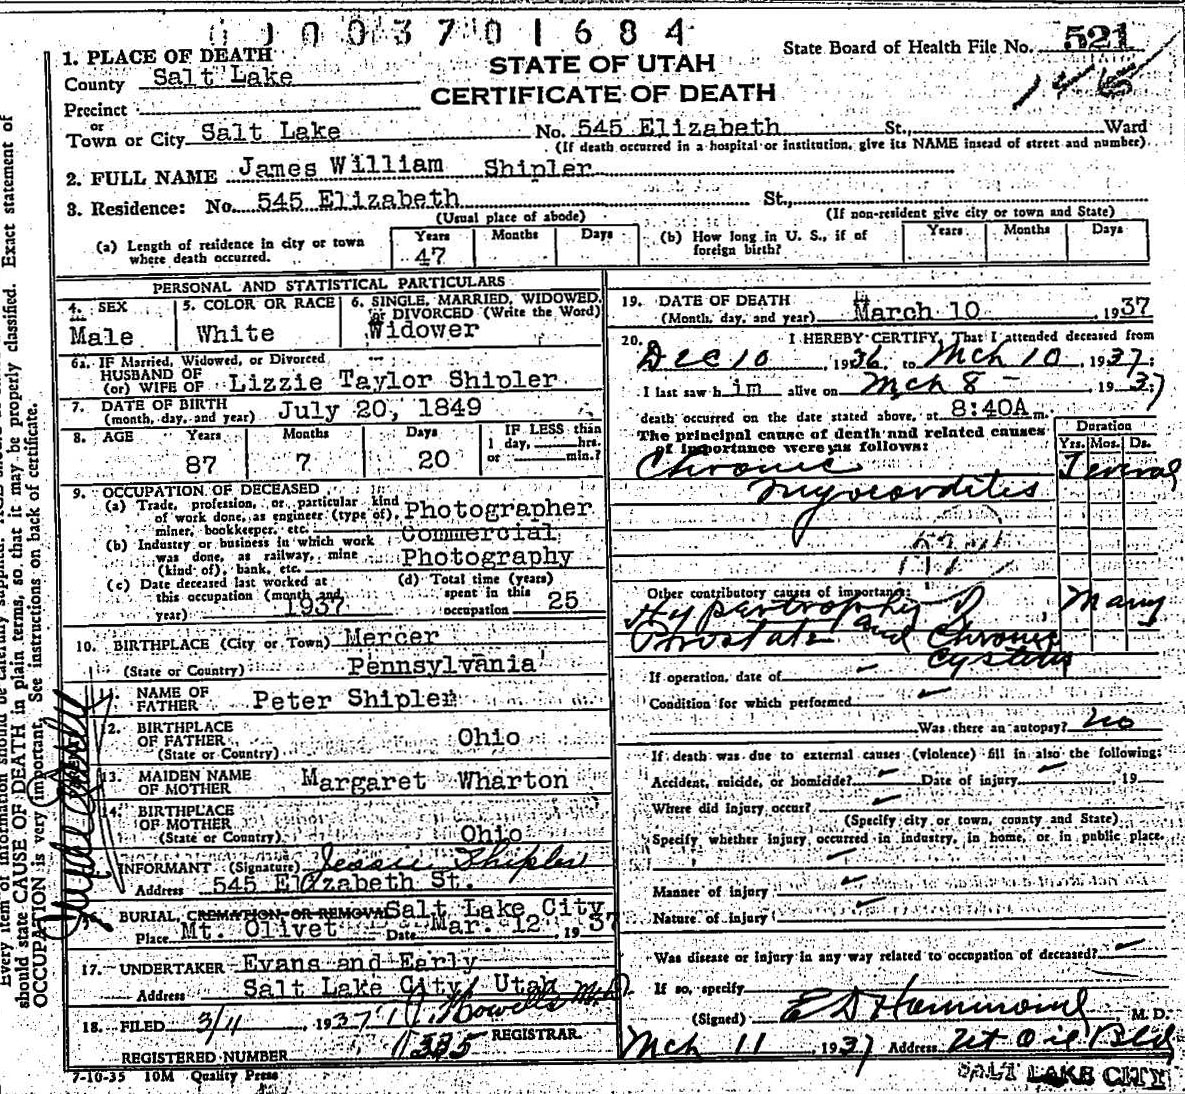 0 1 0 0 3 7 0 1 6 8 4
State Board of Health File No. 521
STATE OF UTAH
CERTIFICATE OF DEATH
1. PLACE OF DEATH
County Salt Lake
Precinct
or
Town or City Salt Lake No. 545 Elizabeth St., Ward
(If death occurred in a hospital or institution, give its NAME instead of street and number).
2. FULL NAME James William Shipler
3. Residence: No. 545 Elizabeth St.,
(Usual place of abode) (If non-resident give city or town and State)
(a) Length of residence in city or town where death occurred. Years 47 Months Days
(b) How long in U. S., if of foreign birth? Years Months Days
PERSONAL AND STATISTICAL PARTICULARS
4. SEX Male
5. COLOR OR RACE White
6. SINGLE, MARRIED, WIDOWED, or DIVORCED (Write the Word) Widower
6a. IF Married, Widowed, or Divorced
HUSBAND OF
(or) WIFE OF Lizzie Taylor Shipler
7. DATE OF BIRTH
(month, day, and year) July 20, 1849
8. AGE Years 87 Months 7 Days 20
IF LESS than
1 day, hrs.
or min.?
9. OCCUPATION OF DECEASED
(a) Trade, profession, or particular kind
of work done, as engineer (type of), Photographer
miner, bookkeeper, etc.
(b) Industry or business in which work Commercial
was done, as railway, mine Photography
(kind of), bank, etc.
(c) Date deceased last worked at
this occupation (month and
year) 1937
(d) Total time (years)
spent in this
occupation 25
10. BIRTHPLACE (City or Town) Mercer
(State or Country) Pennsylvania
11. NAME OF
FATHER Peter Shipler
12. BIRTHPLACE
OF FATHER Ohio
(State or Country)
13. MAIDEN NAME
OF MOTHER Margaret Wharton
14. BIRTHPLACE
OF MOTHER
(State or Country) Ohio
INFORMANT (Signature) Jessie Shipler
Address 545 Elizabeth St.
BURIAL, CREMATION, OR REMOVAL Salt Lake City
Place Mt. Olivet Date Mar. 12, 1937
17. UNDERTAKER Evans and Early
Address Salt Lake City, Utah
18. FILED 3/11, 1937 Howells M.D.
REGISTRAR.
REGISTERED NUMBER 535
7-10-35 10M Quality Press
19. DATE OF DEATH
(Month, day, and year) March 10 1937
20. I HEREBY CERTIFY, That I attended deceased from
Dec 10, 1936, to Mch 10, 1937;
I last saw him alive on Mch 8 - 1937;
death occurred on the date stated above, at 8:40A m.
The principal cause of death and related causes
of importance were as follows:
Duration
Yrs. Mos. Ds.
Chronic Several
Myocarditis
Other contributory causes of importance:
Hypertrophy of Many
Prostate and Chronic
Cystitis
If operation, date of
Condition for which performed
Was there an autopsy? no
If death was due to external causes (violence) fill in also the following:
Accident, suicide, or homicide? Date of injury 19
Where did injury occur?
(Specify city or town, county and State)
Specify whether injury occurred in industry, in home, or in public place.
Manner of injury
Nature of injury
Was disease or injury in any way related to occupation of deceased?
If so, specify
(Signed) E D Hammond M. D.
Mch 11, 1937 Address Ut Oil Bld
SALT LAKE CITY
Every item of information should be carefully supplied.
Exact statement of
should state CAUSE OF DEATH in plain terms, so that it may be properly classified.
OCCUPATION is very important. See instructions on back of certificate.